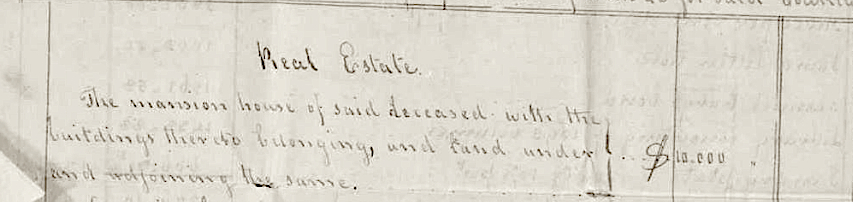 Real Estate.
The mansion house of said deceased with the
buildings thereto belonging, and land under } ... $ 10.000 "
and adjoining the same.